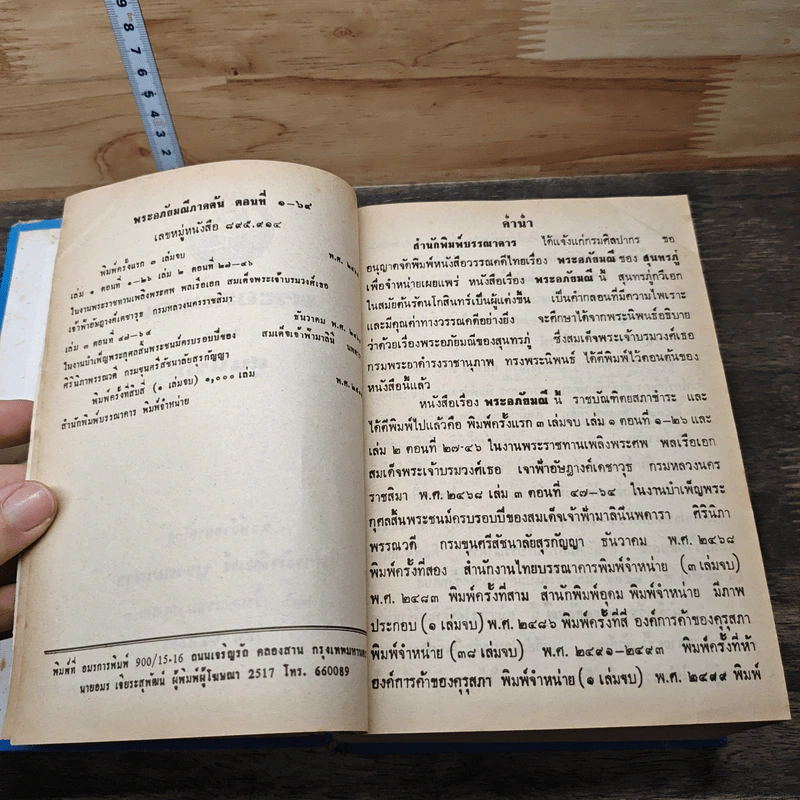 9 8 7 6 5 4 3 2
พระอภัยมณีภาคต้น ตอนที่ ๑-๖๔
เลขหมู่หนังสือ ๘๙๕.๙๑๔
พิมพ์ครั้งแรก ๓ เล่มจบ พ.ศ.
เล่ม ๑ ตอนที่ ๑-๒๖ เล่ม ๒ ตอนที่ ๒๗-๔๖
ในงานพระราชทานเพลิงพระศพ พลเรือเอก สมเด็จพระเจ้าบรมวงศ์เธอ
เจ้าฟ้าอัษฎางค์เดชาวุธ กรมหลวงนครราชสีมา
เล่ม ๓ ตอนที่ ๔๗-๖๔ ธันวาคม พ.ศ.
ในงานบำเพ็ญพระกุศลสิ้นพระชนม์ครบรอบปีของ สมเด็จเจ้าฟ้ามาลินี
ศิรินิภาพรรณวดี กรมขุนศรีสัชนาลัยสุรกัญญา
พิมพ์ครั้งที่สิบสี่ (๑ เล่มจบ) ๑,๐๐๐ เล่ม พ.ศ.
สำนักพิมพ์บรรณาคาร พิมพ์จำหน่าย
พิมพ์ที่ อมรการพิมพ์ 900/15-16 ถนนเจริญรัถ คลองสาน กรุงเทพมหานคร
นายอมร เจียระสุพัฒน์ ผู้พิมพ์ผู้โฆษณา 2517 โทร. 660089
คำนำ
สำนักพิมพ์บรรณาคาร ได้แจ้งแก่กรมศิลปากร ขอ
อนุญาตจัดพิมพ์หนังสือวรรณคดีไทยเรื่อง พระอภัยมณี ของ สุนทรภู่
เพื่อจำหน่ายเผยแพร่ หนังสือเรื่อง พระอภัยมณี นี้ สุนทรภู่กวีเอก
ในสมัยต้นรัตนโกสินทร์เป็นผู้แต่งขึ้น เป็นคำกลอนที่มีความไพเราะ
และมีคุณค่าทางวรรณคดีอย่างยิ่ง จะศึกษาได้จากพระนิพนธ์อธิบาย
ว่าด้วยเรื่องพระอภัยมณีของสุนทรภู่ ซึ่งสมเด็จพระเจ้าบรมวงศ์เธอ
กรมพระยาดำรงราชานุภาพ ทรงพระนิพนธ์ ได้ตีพิมพ์ไว้ตอนต้นของ
หนังสือนี้แล้ว
หนังสือเรื่อง พระอภัยมณี นี้ ราชบัณฑิตยสภาชำระ และ
ได้ตีพิมพ์ไปแล้วคือ พิมพ์ครั้งแรก ๓ เล่มจบ เล่ม ๑ ตอนที่ ๑-๒๖ และ
เล่ม ๒ ตอนที่ ๒๗-๔๖ ในงานพระราชทานเพลิงพระศพ พลเรือเอก
สมเด็จพระเจ้าบรมวงศ์เธอ เจ้าฟ้าอัษฎางค์เดชาวุธ กรมหลวงนคร
ราชสิมา พ.ศ. ๒๔๖๘ เล่ม ๓ ตอนที่ ๔๗-๖๔ ในงานบำเพ็ญพระ
กุศลสิ้นพระชนม์ครบรอบปีของสมเด็จเจ้าฟ้ามาลินีนพดารา ศิรินิภา
พรรณวดี กรมขุนศรีสัชนาลัยสุรกัญญา ธันวาคม พ.ศ. ๒๔๖๘
พิมพ์ครั้งที่สอง สำนักงานไทยบรรณาคารพิมพ์จำหน่าย (๓ เล่มจบ)
พ.ศ. ๒๔๘๓ พิมพ์ครั้งที่สาม สำนักพิมพ์อุดม พิมพ์จำหน่าย มีภาพ
ประกอบ (๑ เล่มจบ) พ.ศ. ๒๔๘๖ พิมพ์ครั้งที่สี่ องค์การค้าของคุรุสภา
พิมพ์จำหน่าย (๓๘ เล่มจบ) พ.ศ. ๒๔๙๑-๒๔๙๓ พิมพ์ครั้งที่ห้า
องค์การค้าของคุรุสภา พิมพ์จำหน่าย (๑ เล่มจบ) พ.ศ. ๒๔๙๙ พิมพ์